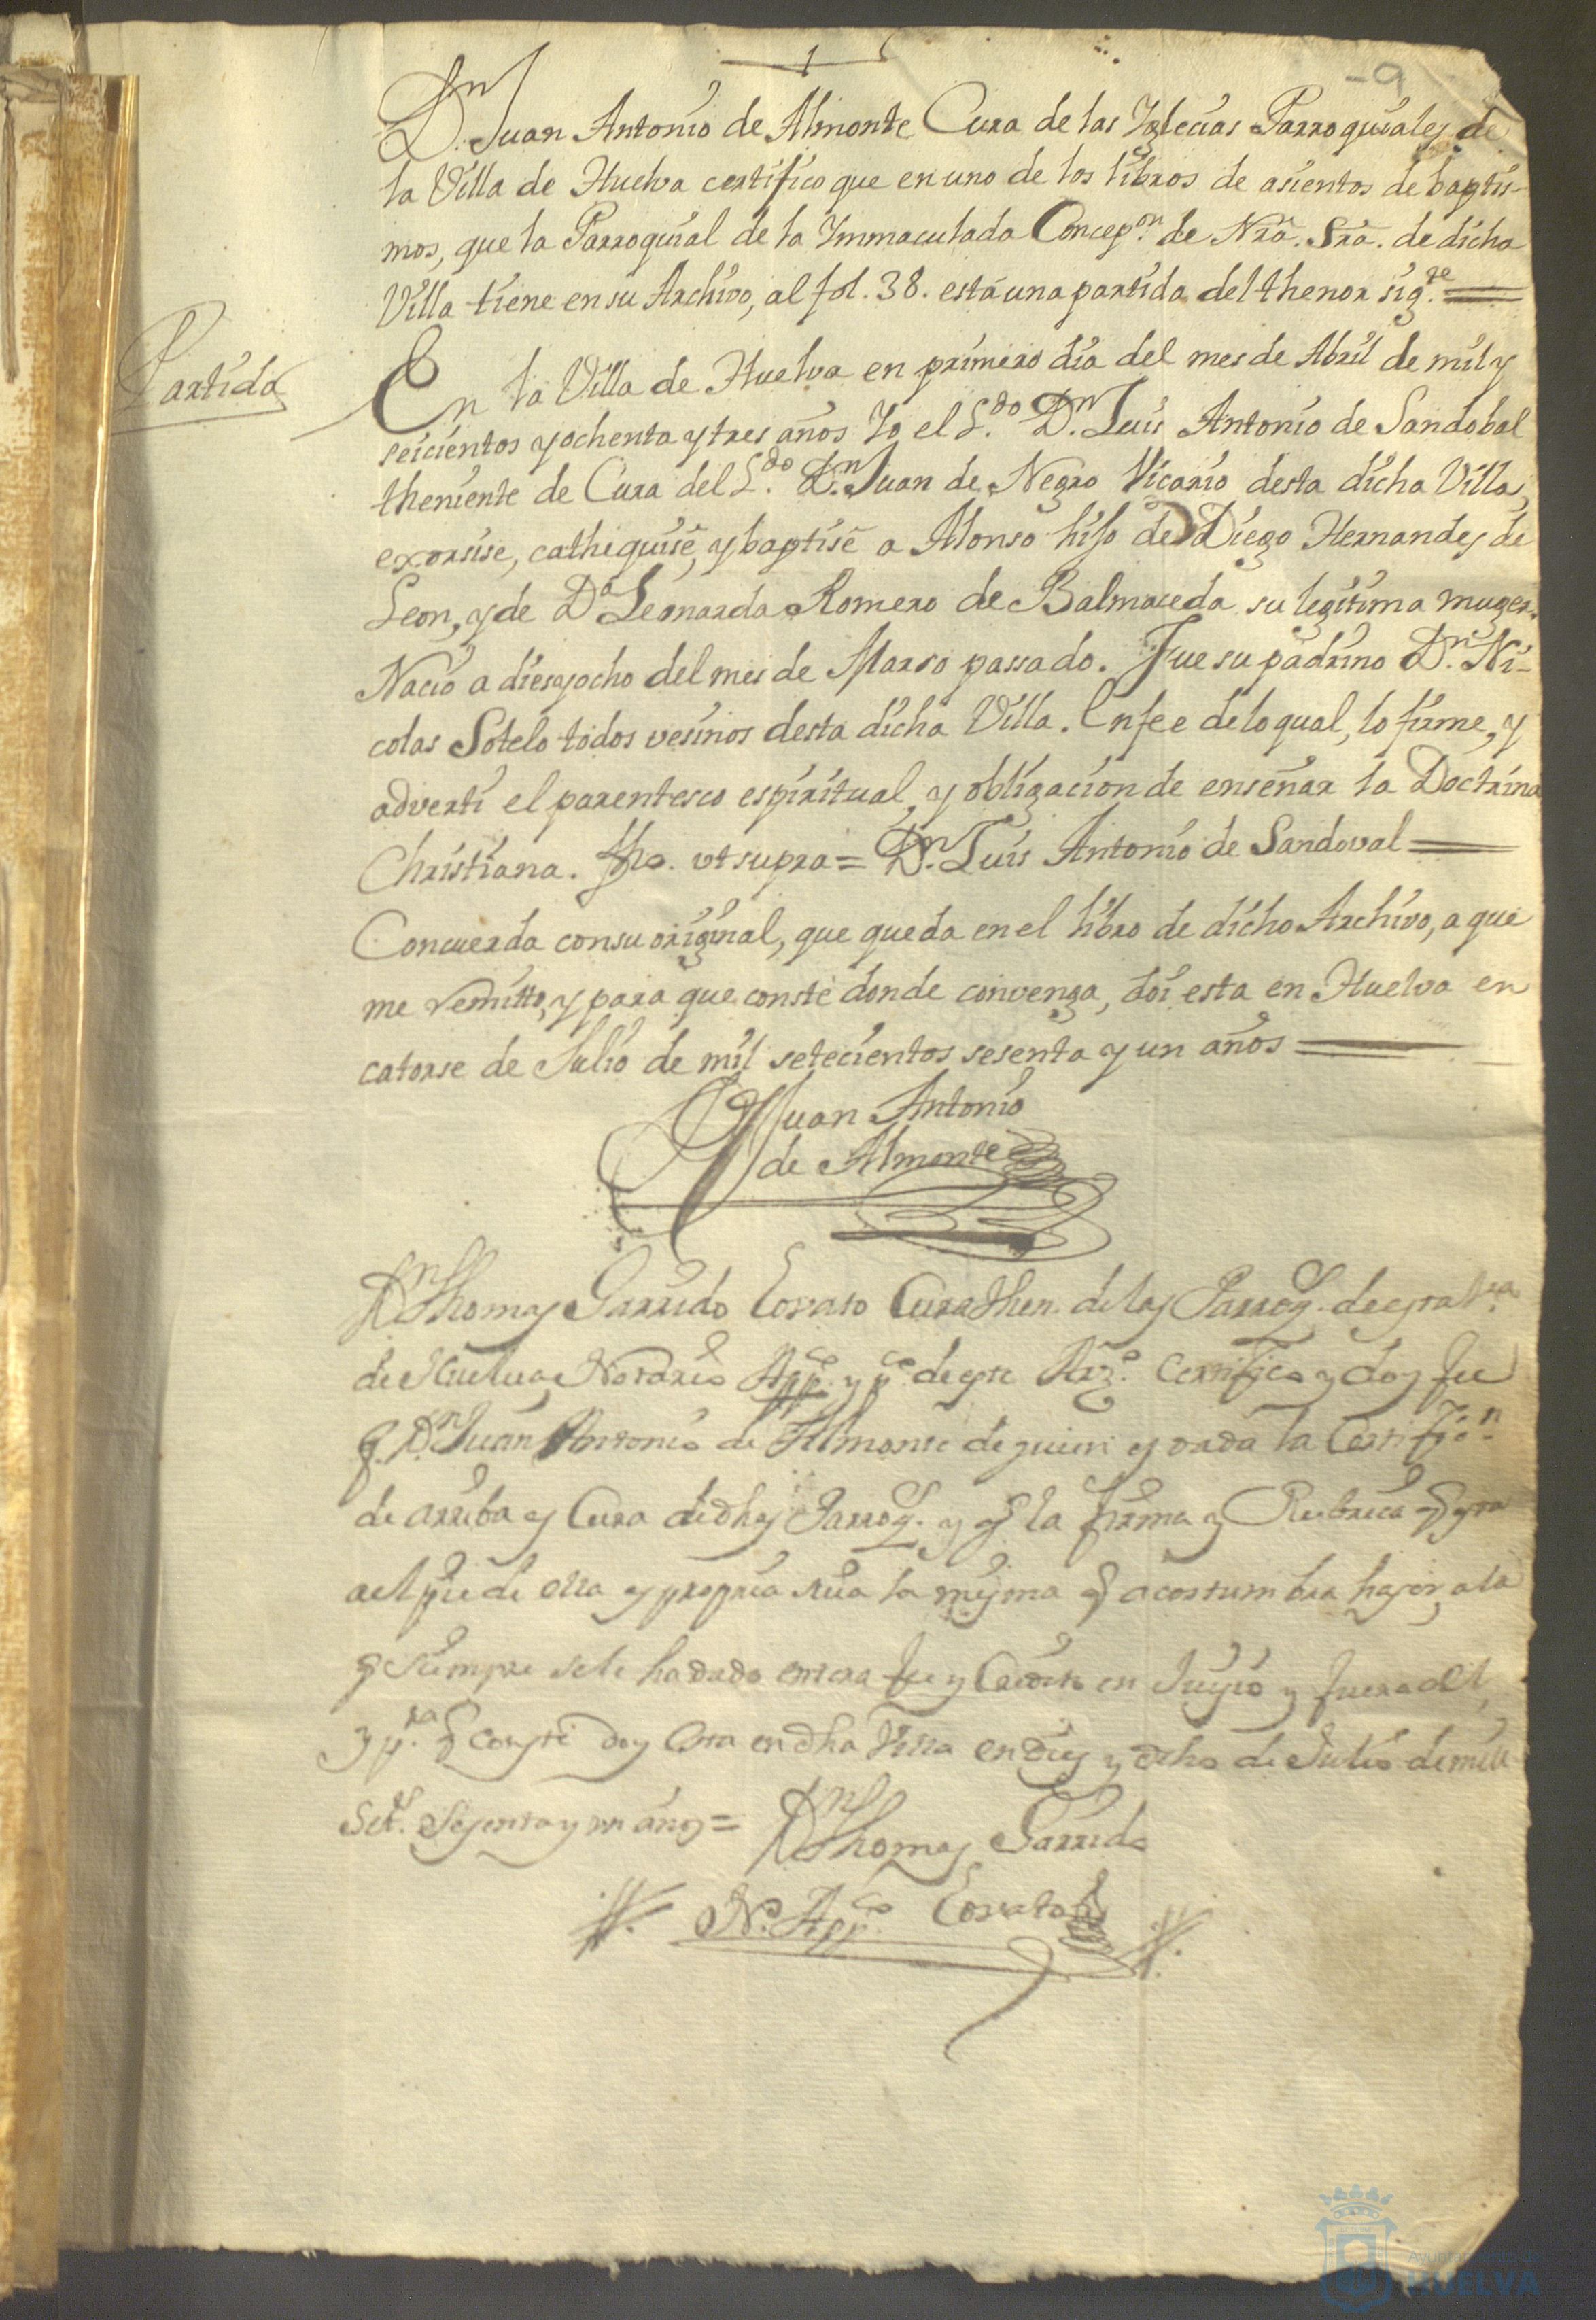 -9
Dn. Juan Antonio de Almonte Cura de las Yglecias Parroquiales de
la Villa de Huelva certifico que en uno de los libros de asientos de baptis-
mos, que la Parroquial de la Ymmaculada Concepon. de Nra. Sra. de dicha
Villa tiene en su Archivo, al fol. 38. está una partida del thenor sigte.
Partida
En la Villa de Huelva en primero dia del mes de Abril de mil y
seicientos y ochenta y tres años Yo el Ldo. Dn. Luis Antonio de Sandobal
theniente de Cura del Ldo. Dn. Juan de Negro Vicario desta dicha Villa,
exorsise, cathequisé, y baptisé a Alonso hijo de Diego Hernandes de
Leon, y de Da. Leonarda Romero de Balmaceda su legitima muger.
Nació a dies y ocho del mes de Marso passado. Fue su padrino Dn. Ni-
colas Sotelo todos vesinos desta dicha Villa. En fee de lo qual, lo firme, y
adverti el parentesco espiritual, y obligacion de enseñar la Doctrina
Christiana. fho. ut supra = Dn. Luis Antonio de Sandoval
Concuerda con su original, que queda en el libro de dicho Archivo, a que
me remitto, y para que conste donde convenga, doi esta en Huelva en
catorse de Julio de mil setecientos sesenta y un años
Dn Juan Antonio
de Almonte
Dn Thomas Garrido Cura then. de las Parroqs. de esta Va.
de Huelva, Notario Appco. y pco. de este Arzo. Certifico y doy fee
q. Dn. Juan Antonio de Almonte de quien es dada la Certificn.
de arriba es Cura de dhas Parroqs. y q la firma y Rubrica q esta
al pie de ella es propria sua la misma q acostumbra haser, a la
q siempre se le ha dado entera fee y Credito en Juisio y fuera de el,
y pa. q conste doy esta en dha Villa en dies y ocho de Julio de mill
Sets. Sesenta y un años =
Dn Thomas Garrido
No. Appco.
HUELVA